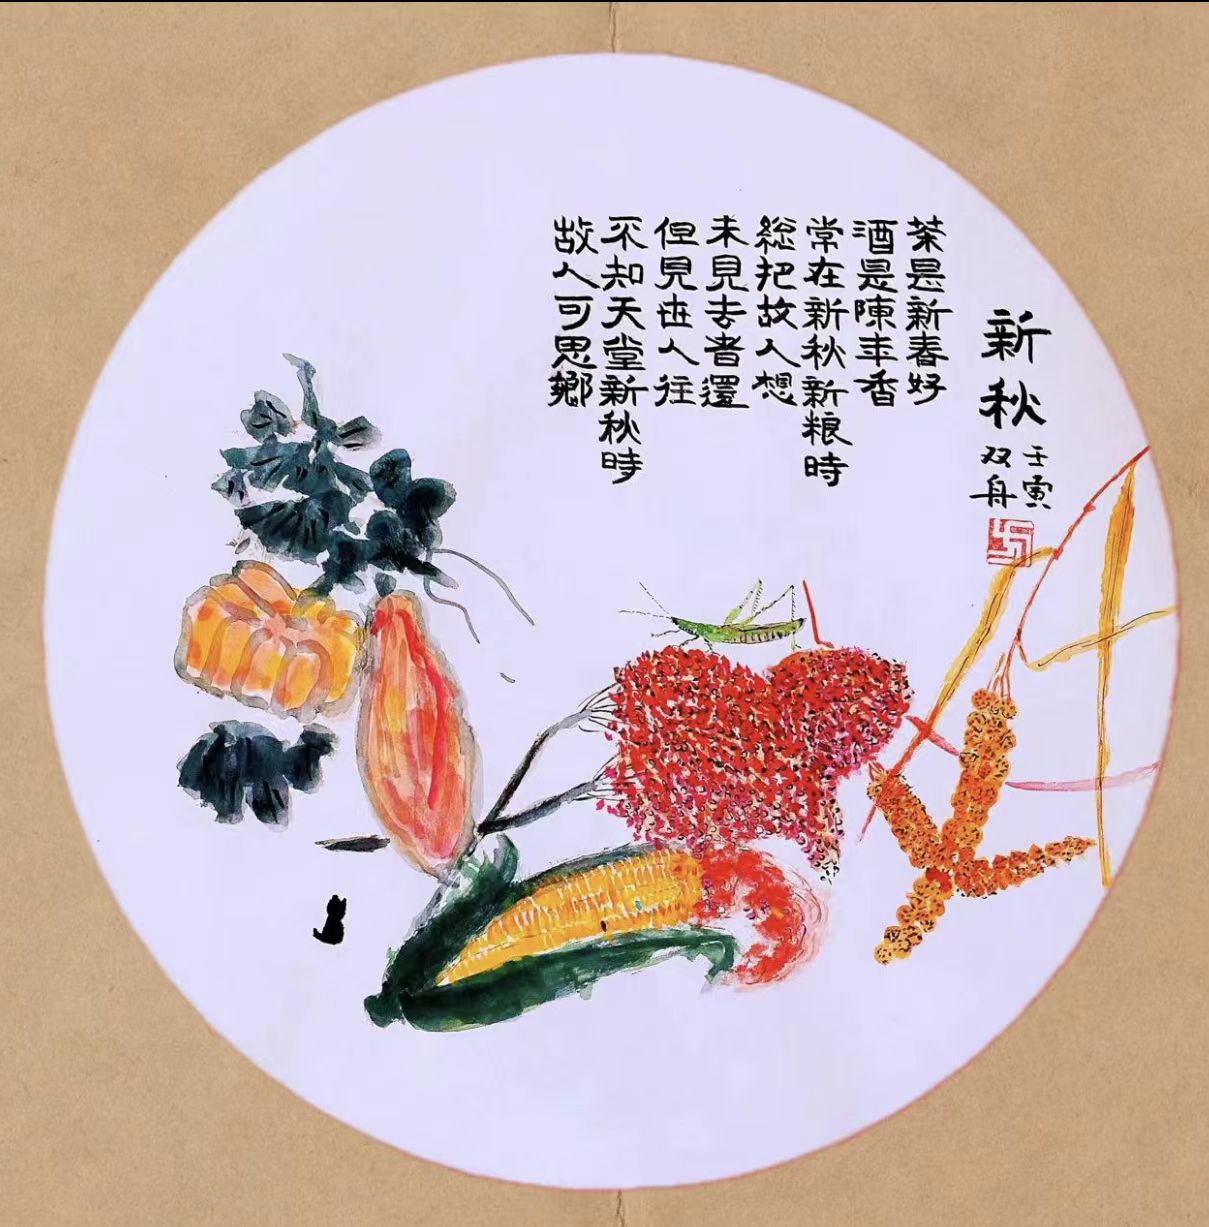 新秋
壬寅
双舟
茶是新春好
酒是陳年香
常在新秋新粮時
総把故人想
未見去者還
但見世人往
不知天堂新秋時
故人可思鄉